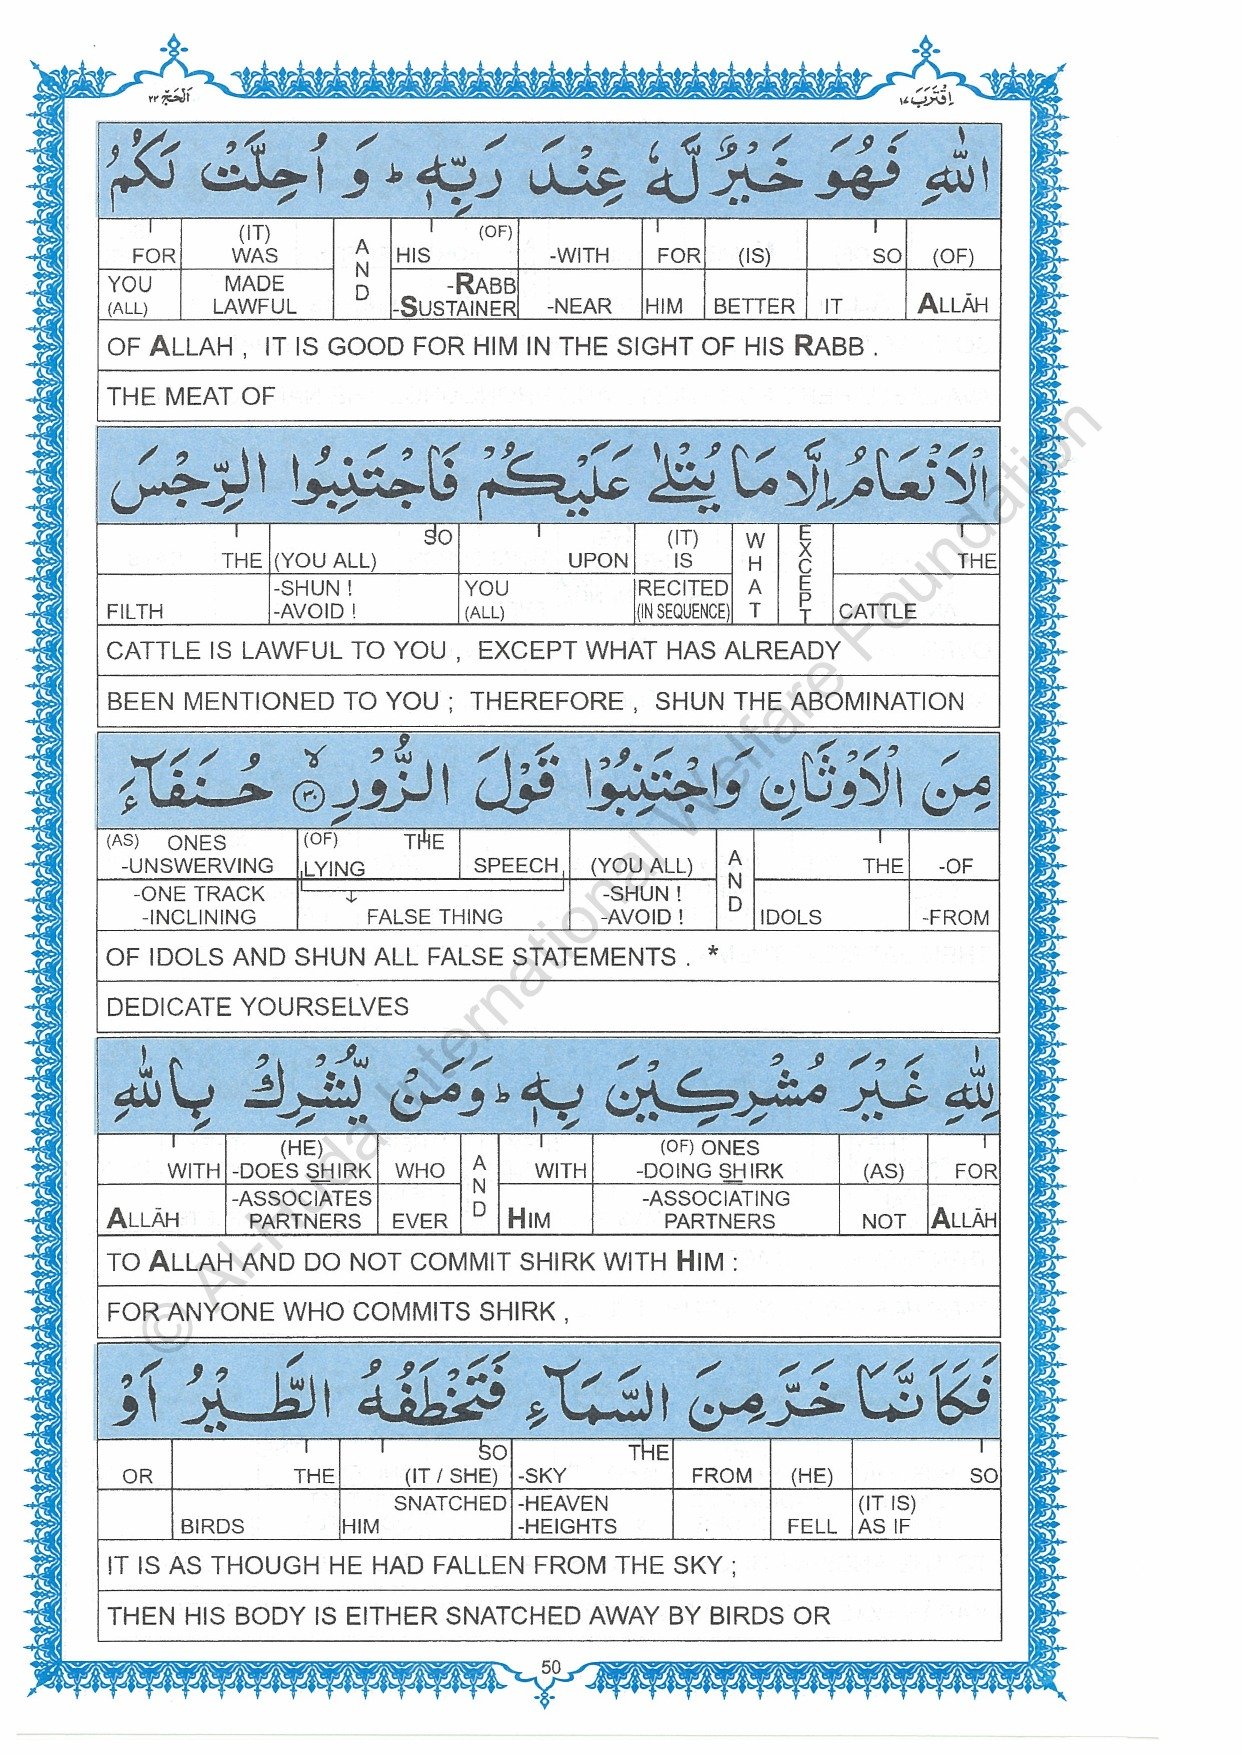 اَلْحَجّ ٢٢
اِقْتَرَبَ ١٧
اللّٰهِ فَهُوَ خَيْرٌ لَّهٗ عِنْدَ رَبِّهٖ ؕ وَ اُحِلَّتْ لَكُمُ
FOR (IT) WAS AND HIS (OF) -WITH FOR (IS) SO (OF)
YOU (ALL) MADE LAWFUL -RABB -SUSTAINER -NEAR HIM BETTER IT ALLĀH
OF ALLAH , IT IS GOOD FOR HIM IN THE SIGHT OF HIS RABB .
THE MEAT OF
الْاَنْعَامُ اِلَّا مَا يُتْلٰى عَلَيْكُمْ فَاجْتَنِبُوا الرِّجْسَ
THE (YOU ALL) SO UPON (IT) IS WHAT EXCEPT THE
FILTH -SHUN ! -AVOID ! YOU (ALL) RECITED (IN SEQUENCE) CATTLE
CATTLE IS LAWFUL TO YOU , EXCEPT WHAT HAS ALREADY
BEEN MENTIONED TO YOU ; THEREFORE , SHUN THE ABOMINATION
مِنَ الْاَوْثَانِ وَاجْتَنِبُوْا قَوْلَ الزُّوْرِ ۙ ٣٠ حُنَفَآءَ
(AS) ONES -UNSWERVING (OF) THE LYING SPEECH (YOU ALL) AND THE -OF
-ONE TRACK -INCLINING ↓ FALSE THING -SHUN ! -AVOID ! IDOLS -FROM
OF IDOLS AND SHUN ALL FALSE STATEMENTS . *
DEDICATE YOURSELVES
لِلّٰهِ غَيْرَ مُشْرِكِيْنَ بِهٖ ؕ وَمَنْ يُّشْرِكْ بِاللّٰهِ
WITH (HE) -DOES SHIRK WHO AND WITH (OF) ONES -DOING SHIRK (AS) FOR
ALLĀH -ASSOCIATES PARTNERS EVER HIM -ASSOCIATING PARTNERS NOT ALLĀH
TO ALLAH AND DO NOT COMMIT SHIRK WITH HIM :
FOR ANYONE WHO COMMITS SHIRK ,
فَكَاَنَّمَا خَرَّ مِنَ السَّمَآءِ فَتَخْطَفُهُ الطَّيْرُ اَوْ
OR THE SO (IT / SHE) THE -SKY FROM (HE) SO
BIRDS SNATCHED HIM -HEAVEN -HEIGHTS FELL (IT IS) AS IF
IT IS AS THOUGH HE HAD FALLEN FROM THE SKY ;
THEN HIS BODY IS EITHER SNATCHED AWAY BY BIRDS OR
50
© Al-Huda International Welfare Foundation